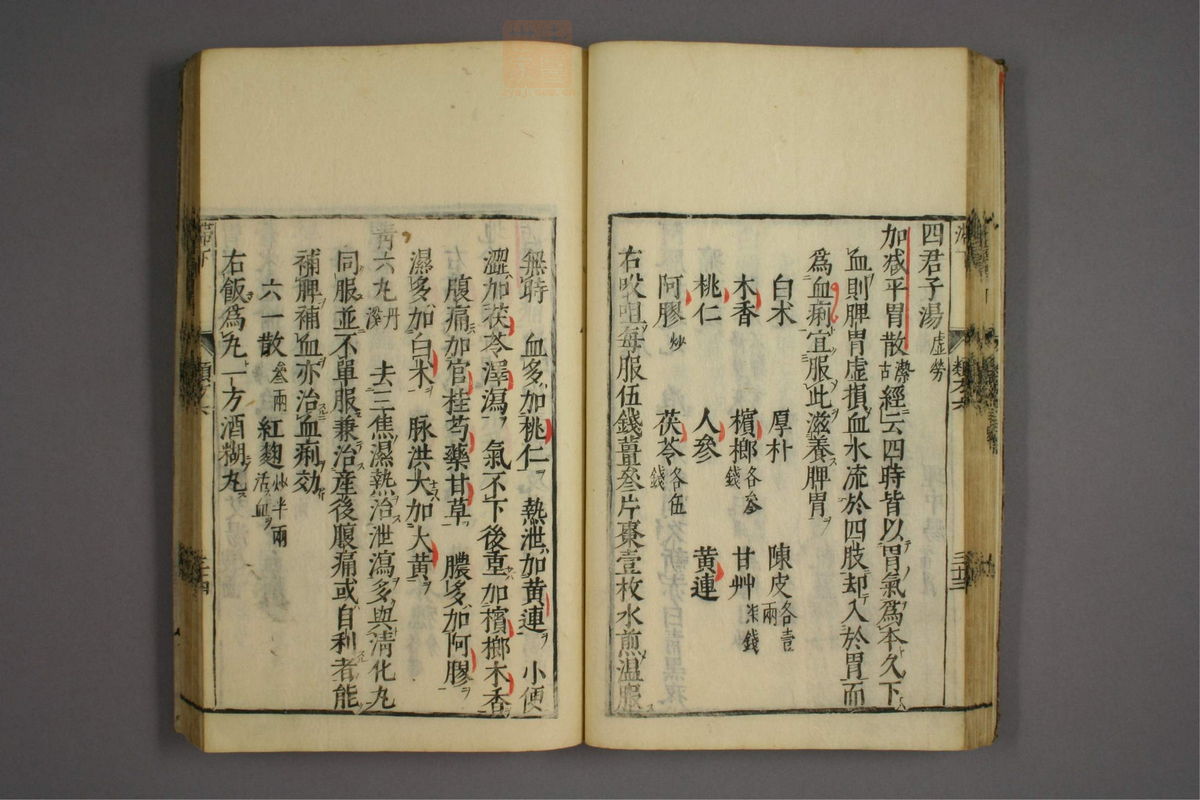 四君子湯虛勞
加減平胃散潔古經云四時皆以胃氣爲本久下
血則脾胃虛損血水流於四肢却入於胃而
爲血痢宜服此滋養脾胃
白朮 厚朴 陳皮各壹兩
木香 檳榔各叄錢 甘艸柒錢
桃仁 人參 黄連
阿膠炒 茯苓各伍錢
右㕮咀每服伍錢薑叄片棗壹枚水煎温服
無時 血多加桃仁 熱泄加黄連 小便
澀加茯苓澤瀉 氣不下後重加檳榔木香
腹痛加官桂芍藥甘草 膿多加阿膠
濕多加白朮 脉洪大加大黄
靑六丸丹溪 去三焦濕熱治泄瀉多與淸化丸
同服並不單服兼治産後腹痛或自利者能
補脾補血亦治血痢効
六一散叄兩 紅麴炒半兩活血
右飯爲丸一方酒糊丸